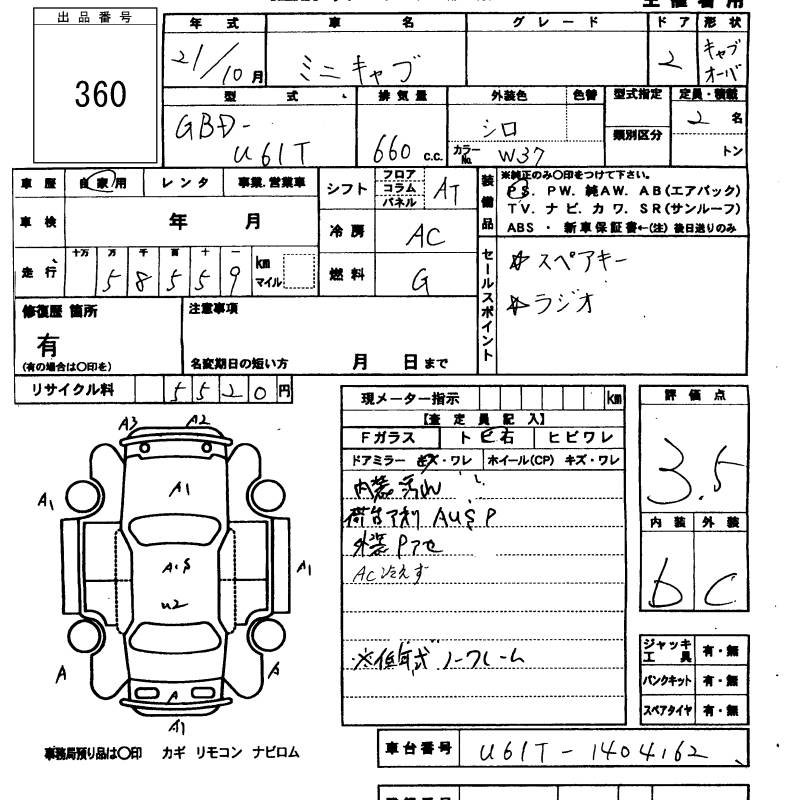 出品番号
360
年式 車名 グレード ドア 形状
21/10月 ミニキャブ 2 キャブオーバ
型式 排気量 外装色 色替 型式指定 定員・積載
GBD-U61T 660 c.c. シロ 類別区分 2 名
カラーNo. W37 トン
車歴 自家用 レンタ 事業.営業車
シフト フロア コラム パネル AT
装備品 ※純正のみ〇印をつけて下さい。
PS. PW. 純AW. AB(エアバック)
TV. ナビ. カワ. SR(サンルーフ)
ABS ・ 新車保証書←(注) 後日送りのみ
車検 年 月
冷房 AC
走行 十万 万 千 百 十 一
58559 km マイル
燃料 G
セールスポイント
☆スペアキー
☆ラジオ
修復歴 箇所
有
(有の場合は〇印を)
注意事項
名変期日の短い方 月 日まで
リサイクル料 5520円
現メーター指示 km
【査定員記入】
Fガラス トビ石 ヒビワレ
ドアミラー キズ・ワレ ホイール(CP) キズ・ワレ
内装汚れ
荷台アオリ AUSP
外装Pアセ
AC冷えず
※低年式 ノークレーム
評価点
3.5
内装 外装
b C
A3 A2
A1
A1
A1
AS
U2
A
A
A
A1
ジャッキ工具 有・無
パンクキット 有・無
スペアタイヤ 有・無
事務局預り品は〇印 カギ リモコン ナビロム
車台番号 U61T-1404162